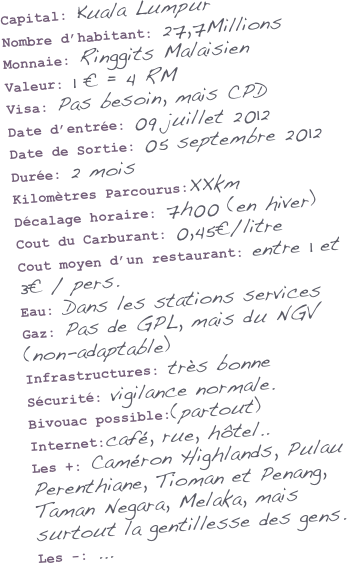 Capital: Kuala Lumpur
Nombre d'habitant: 27,7Millions
Monnaie: Ringgits Malaisien
Valeur: 1 € = 4 RM
Visa: Pas besoin, mais CPD
Date d'entrée: 09 juillet 2012
Date de Sortie: 05 septembre 2012
Durée: 2 mois
Kilomètres Parcourus:XXkm
Décalage horaire: 7h00 (en hiver)
Cout du Carburant: 0,45€/litre
Cout moyen d'un restaurant: entre 1 et
3€ / pers.
Eau: Dans les stations services
Gaz: Pas de GPL, mais du NGV
(non-adaptable)
Infrastructures: très bonne
Sécurité: vigilance normale.
Bivouac possible:(partout)
Internet:café, rue, hôtel..
Les +: Caméron Highlands, Pulau
Perenthiane, Tioman et Penang,
Taman Negara, Melaka, mais
surtout la gentillesse des gens.
Les -: ...